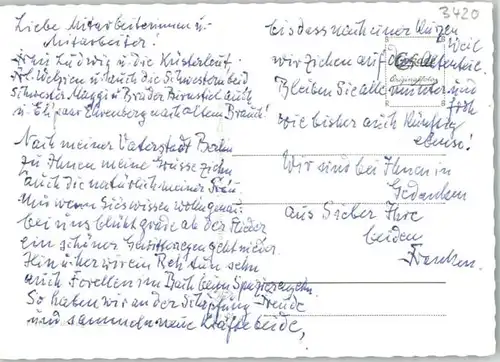 Liebe Mitarbeiterinnen u.
Mitarbeiter!
Frau Ludwig u. die Küsterleut
u. auch die Schwestern beid
Schwester Maggi u. Bruder auch
u. Ehepaar Ehrenberg nach altem Brauch!
Nach meiner Vaterstadt Berlin
zu Ihnen meine Grüsse ziehn
auch die natürlich meiner Frau.
Und wenn Sie's wissen wollen genau:
bei uns blüht grade ab der Flieder
ein schöner Gewitterregen geht nieder.
Hin u. her wir ein Reh tun sehn
auch Forellen im Bach beim Spazierengehn.
So haben wir an der Schöpfung Freude
und sammeln neue Kräfte beide,
3420
bis dass nach einer kurzen Weil
wir ziehen auf
Bleiben Sie alle munter und froh
wie bisher auch künftig
ebenso!
Wir sind bei Ihnen in
Gedanken
aus Sieber Ihre
beiden
Franken.